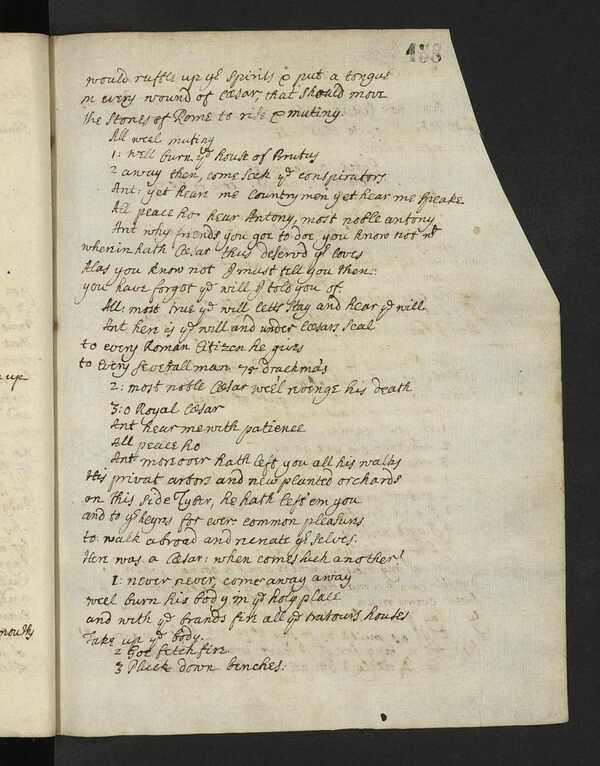 158
would ruffle up yr spirits & put a tongue
in every wound of Cæsar, that should move
the stones of Rome to rise & mutiny.
All weel mutiny
1: well burn ye house of Brutus
2 away then, come seek ye conspirators
Ant: yet heare me Countrymen yet hear me speake
All peace ho hear Antony, most noble antony
Ant why friends you goe to doe you know not wt
wherin hath Cæsar thus deserv'd yr loves
Alas you know not I must tell you then:
you have forgot ye will I told you of.
All: most true ye will letts stay and hear ye will
Ant here is ye will and under Cæsars seal
to every Roman Citizen he gives
to Every severall man 75 drackma's
2: most noble Cæsar weel revenge his death
3: o Royal Cæsar
Ant hear me with patience
All peace ho
Ant moreover hath left you all his walks
His privat arbors and new planted orchards
on this side Tyber, he hath left em you
and to yr heyres for ever common pleasures
to walk abroad and recreate yr selves.
Here was a Cæsar: when comes such another!
1: never never, come away away
weel burn his body in ye holy place
and with ye brands fire all ye traitours houses
Take up ye body.
2 Goe fetch fire
3 Pluck down benches.
up